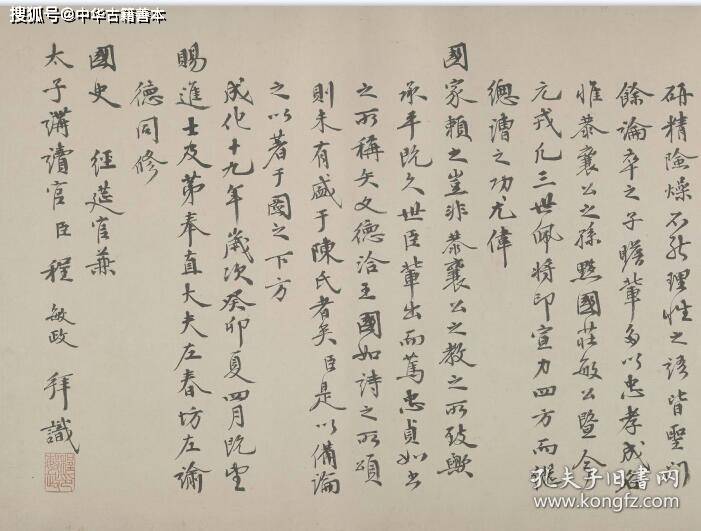 搜狐号@中华古籍善本
研精險燥不能理性之語皆聖門
餘論卒之子瞻輩多以忠孝成名
惟恭襄公之孫黔國莊敏公暨今
元戎凡三世佩將印宣力四方而
總漕之功尤偉
國家賴之豈非恭襄公之教之所致歟
承平既久世臣輩出而篤忠貞如書
之所稱矣文德洽王國如詩之所頌
則未有盛于陳氏者矣臣是以備論
之以著于圖之下方
成化十九年歲次癸卯夏四月既望
賜進士及第奉直大夫左春坊左諭
德同修
國史 經筵官兼
太子講讀官臣程敏政拜識
孔夫子旧书网
kongfz.com